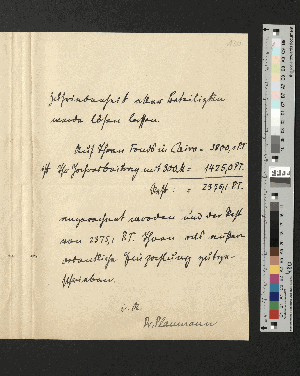 zufriedenheit aller Beteiligten
werde lösen lassen.
Auf Ihren Fonds in Cairo = 3800,1 PT.
ist Ihr Jahresbeitrag mit 300 M = 1425,0 PT.
Rest : = 2375,1 PT.
angerechnet worden und der Rest
von 2375,1 PT. Ihnen als außer-
ordentliche Einzahlung gutge-
schrieben.
i. A.
Dr. Plaumann